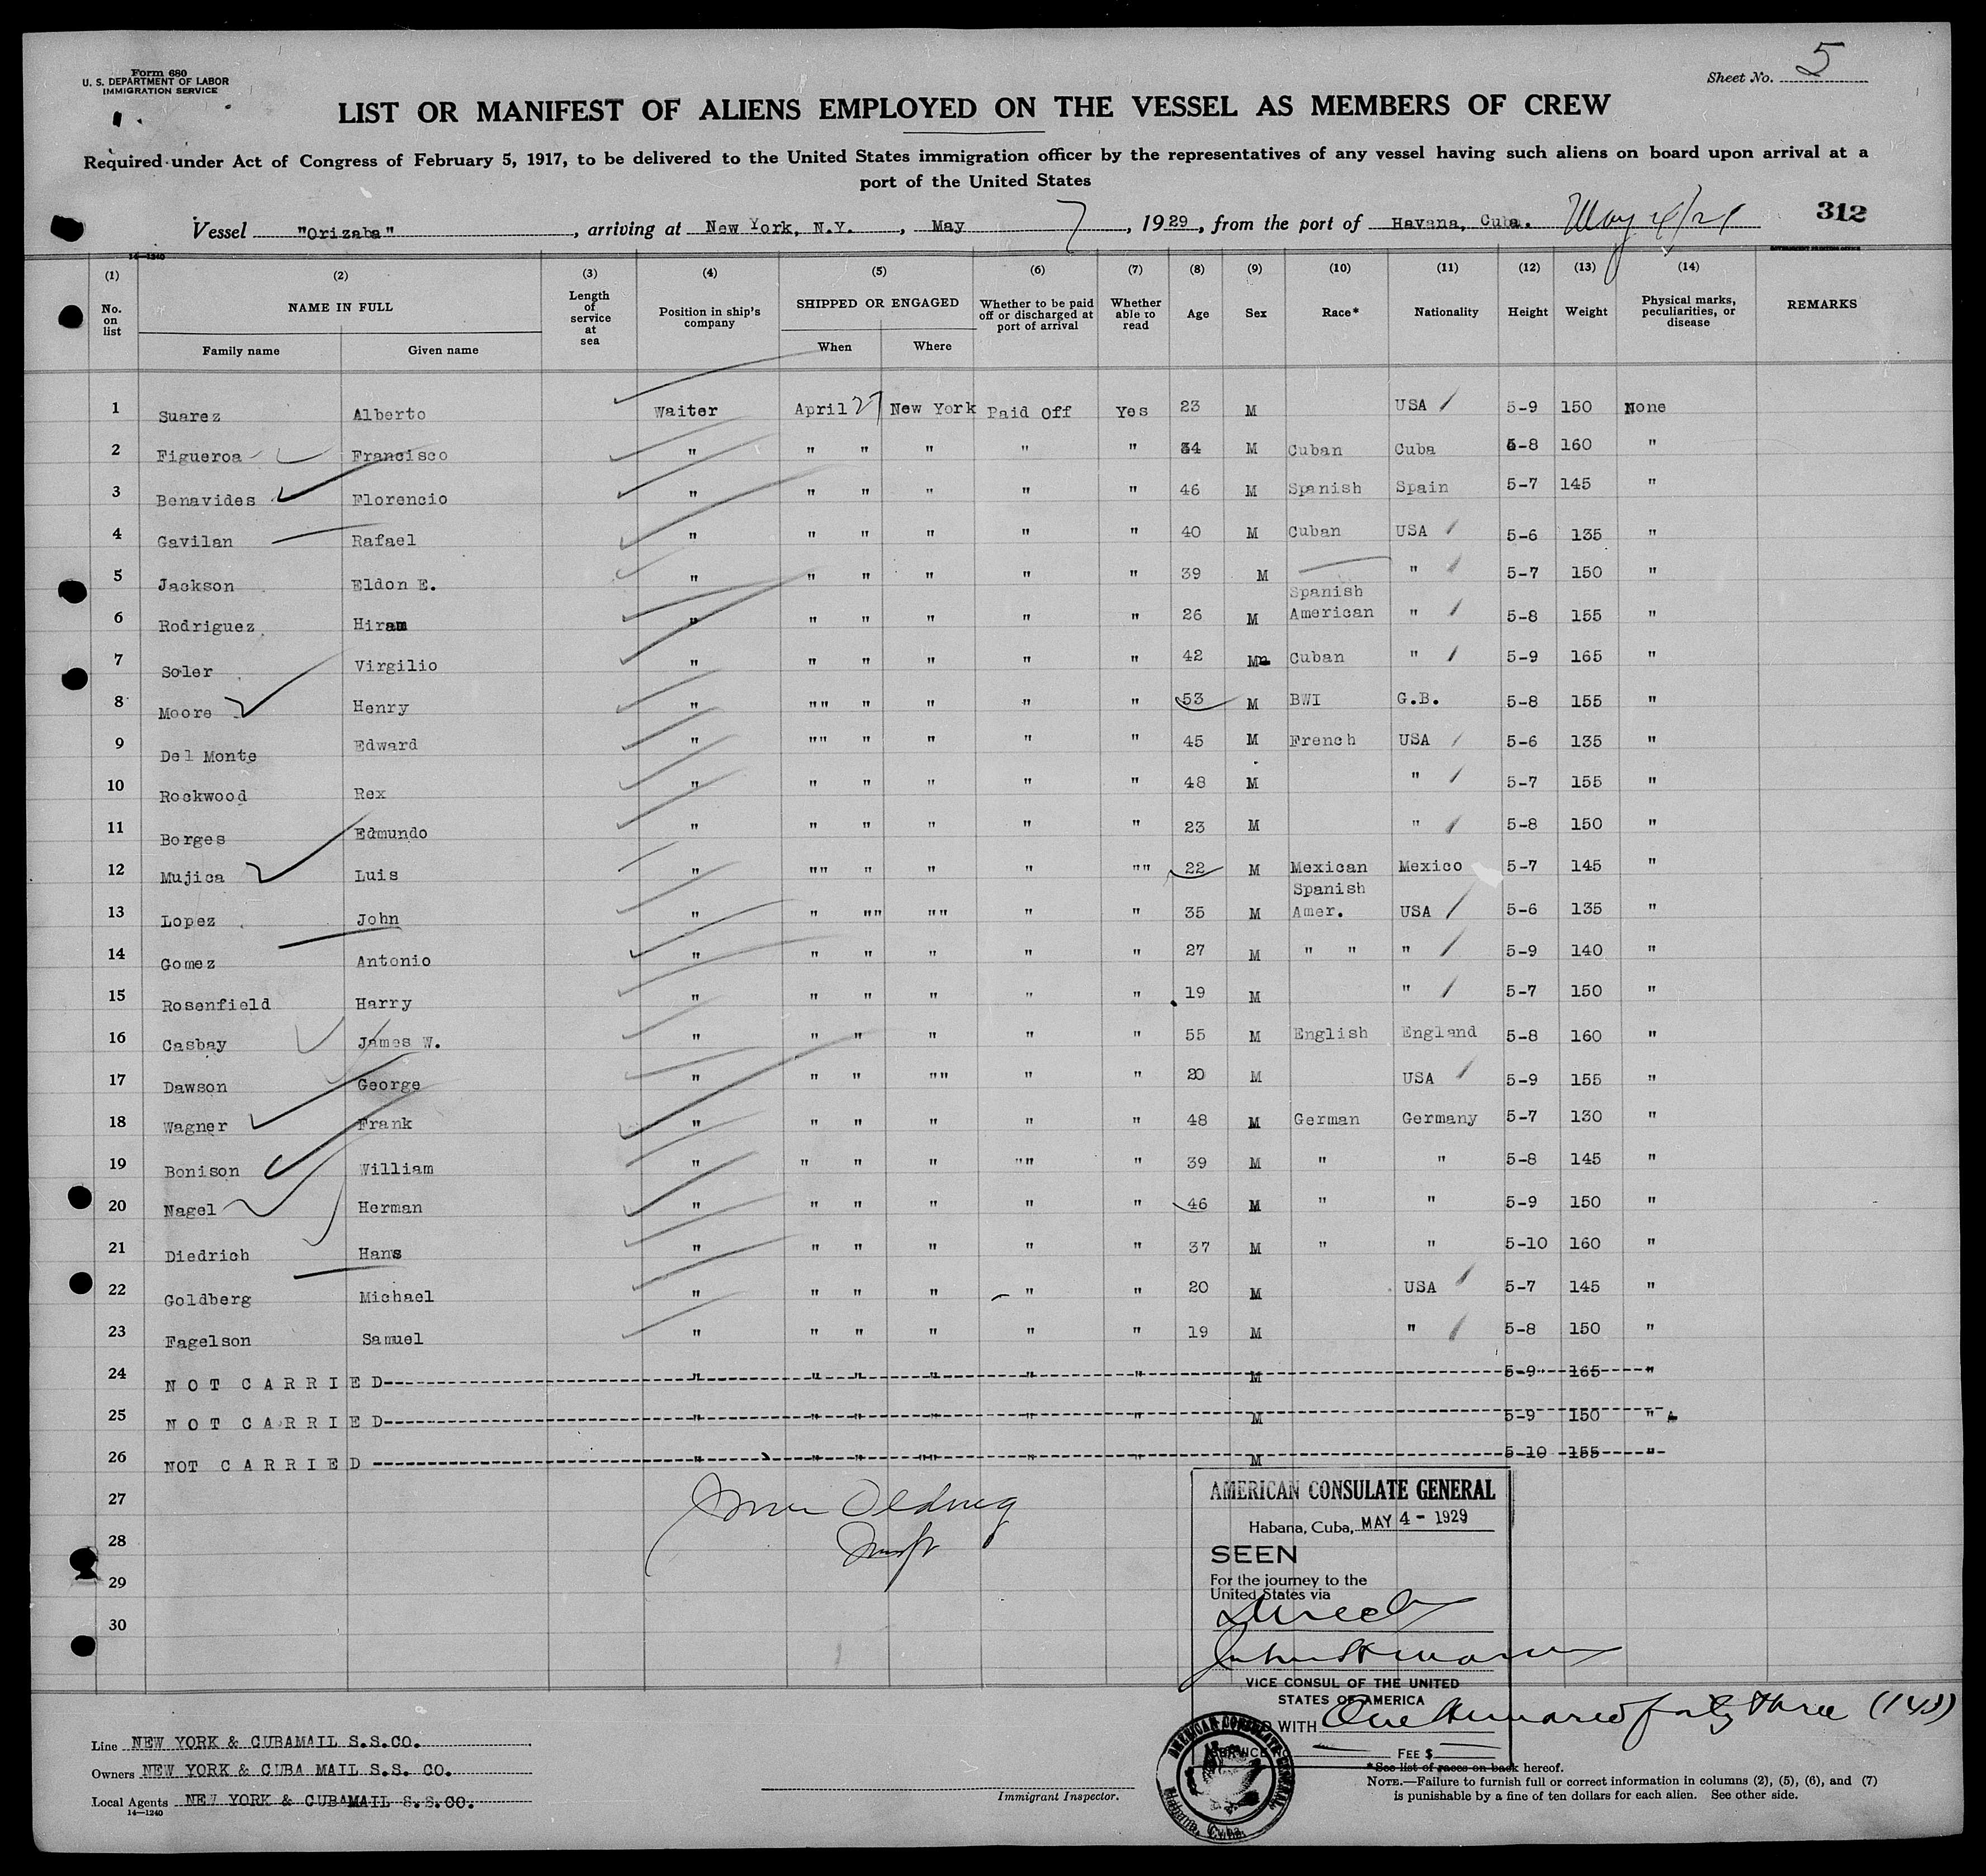 Form 680
U. S. DEPARTMENT OF LABOR
IMMIGRATION SERVICE
Sheet No. 5
LIST OR MANIFEST OF ALIENS EMPLOYED ON THE VESSEL AS MEMBERS OF CREW
Required under Act of Congress of February 5, 1917, to be delivered to the United States immigration officer by the representatives of any vessel having such aliens on board upon arrival at a
port of the United States
Vessel "Orizaba", arriving at New York, N.Y., May 7, 1929, from the port of Havana, Cuba. May 4/29 312
14—1240
(1) (2) (3) (4) (5) (6) (7) (8) (9) (10) (11) (12) (13) (14)
No. on list NAME IN FULL Family name Given name Length of service at sea Position in ship's company SHIPPED OR ENGAGED When Where Whether to be paid off or discharged at port of arrival Whether able to read Age Sex Race* Nationality Height Weight Physical marks, peculiarities, or disease REMARKS
1 Suarez Alberto Waiter April 27 New York Paid Off Yes 23 M USA 5-9 150 None
2 Figueroa Francisco " " " " " " 34 M Cuban Cuba 5-8 160 "
3 Benavides Florencio " " " " " " 46 M Spanish Spain 5-7 145 "
4 Gavilan Rafael " " " " " " 40 M Cuban USA 5-6 135 "
5 Jackson Eldon E. " " " " " " 39 M " 5-7 150 "
6 Rodriguez Hiram " " " " " " 26 M Spanish American " 5-8 155 "
7 Soler Virgilio " " " " " " 42 M Cuban " 5-9 165 "
8 Moore Henry " "" " " " " 53 M BWI G.B. 5-8 155 "
9 Del Monte Edward " "" " " " " 45 M French USA 5-6 135 "
10 Rockwood Rex " " " " " " 48 M " 5-7 155 "
11 Borges Edmundo " " " " " " 23 M " 5-8 150 "
12 Mujica Luis " "" " " " "" 22 M Mexican Mexico 5-7 145 "
13 Lopez John " " "" "" " " 35 M Spanish Amer. USA 5-6 135 "
14 Gomez Antonio " " " " " " 27 M " " " 5-9 140 "
15 Rosenfield Harry " " " " " " 19 M " 5-7 150 "
16 Casbay James W. " " " " " " 55 M English England 5-8 160 "
17 Dawson George " " " "" " " 20 M USA 5-9 155 "
18 Wagner Frank " " " " " " 48 M German Germany 5-7 130 "
19 Bonison William " " " " "" " 39 M " " 5-8 145 "
20 Nagel Herman " " " " " " 46 M " " 5-9 150 "
21 Diedrich Hans " " " " " " 37 M " " 5-10 160 "
22 Goldberg Michael " " " " " " 20 M USA 5-7 145 "
23 Fagelson Samuel " " " " " " 19 M " 5-8 150 "
24 NOT CARRIED " " " " " " M 5-9 165 "
25 NOT CARRIED " " " " " " M 5-9 150 "
26 NOT CARRIED " " " "" " " M 5-10 155 "
27
28
29
30
AMERICAN CONSULATE GENERAL
Habana, Cuba, MAY 4 - 1929
SEEN
For the journey to the
United States via
Direct
VICE CONSUL OF THE UNITED
STATES OF AMERICA
WITH One Hundred forty three (143)
FEE $
AMERICAN CONSULATE GENERAL
Habana, Cuba.
Line NEW YORK & CUBAMAIL S.S.CO.
Owners NEW YORK & CUBA MAIL S.S. CO.
Local Agents NEW YORK & CUBAMAIL S.S.CO.
14—1240
Immigrant Inspector.
*See list of races on back hereof.
NOTE.—Failure to furnish full or correct information in columns (2), (5), (6), and (7)
is punishable by a fine of ten dollars for each alien. See other side.